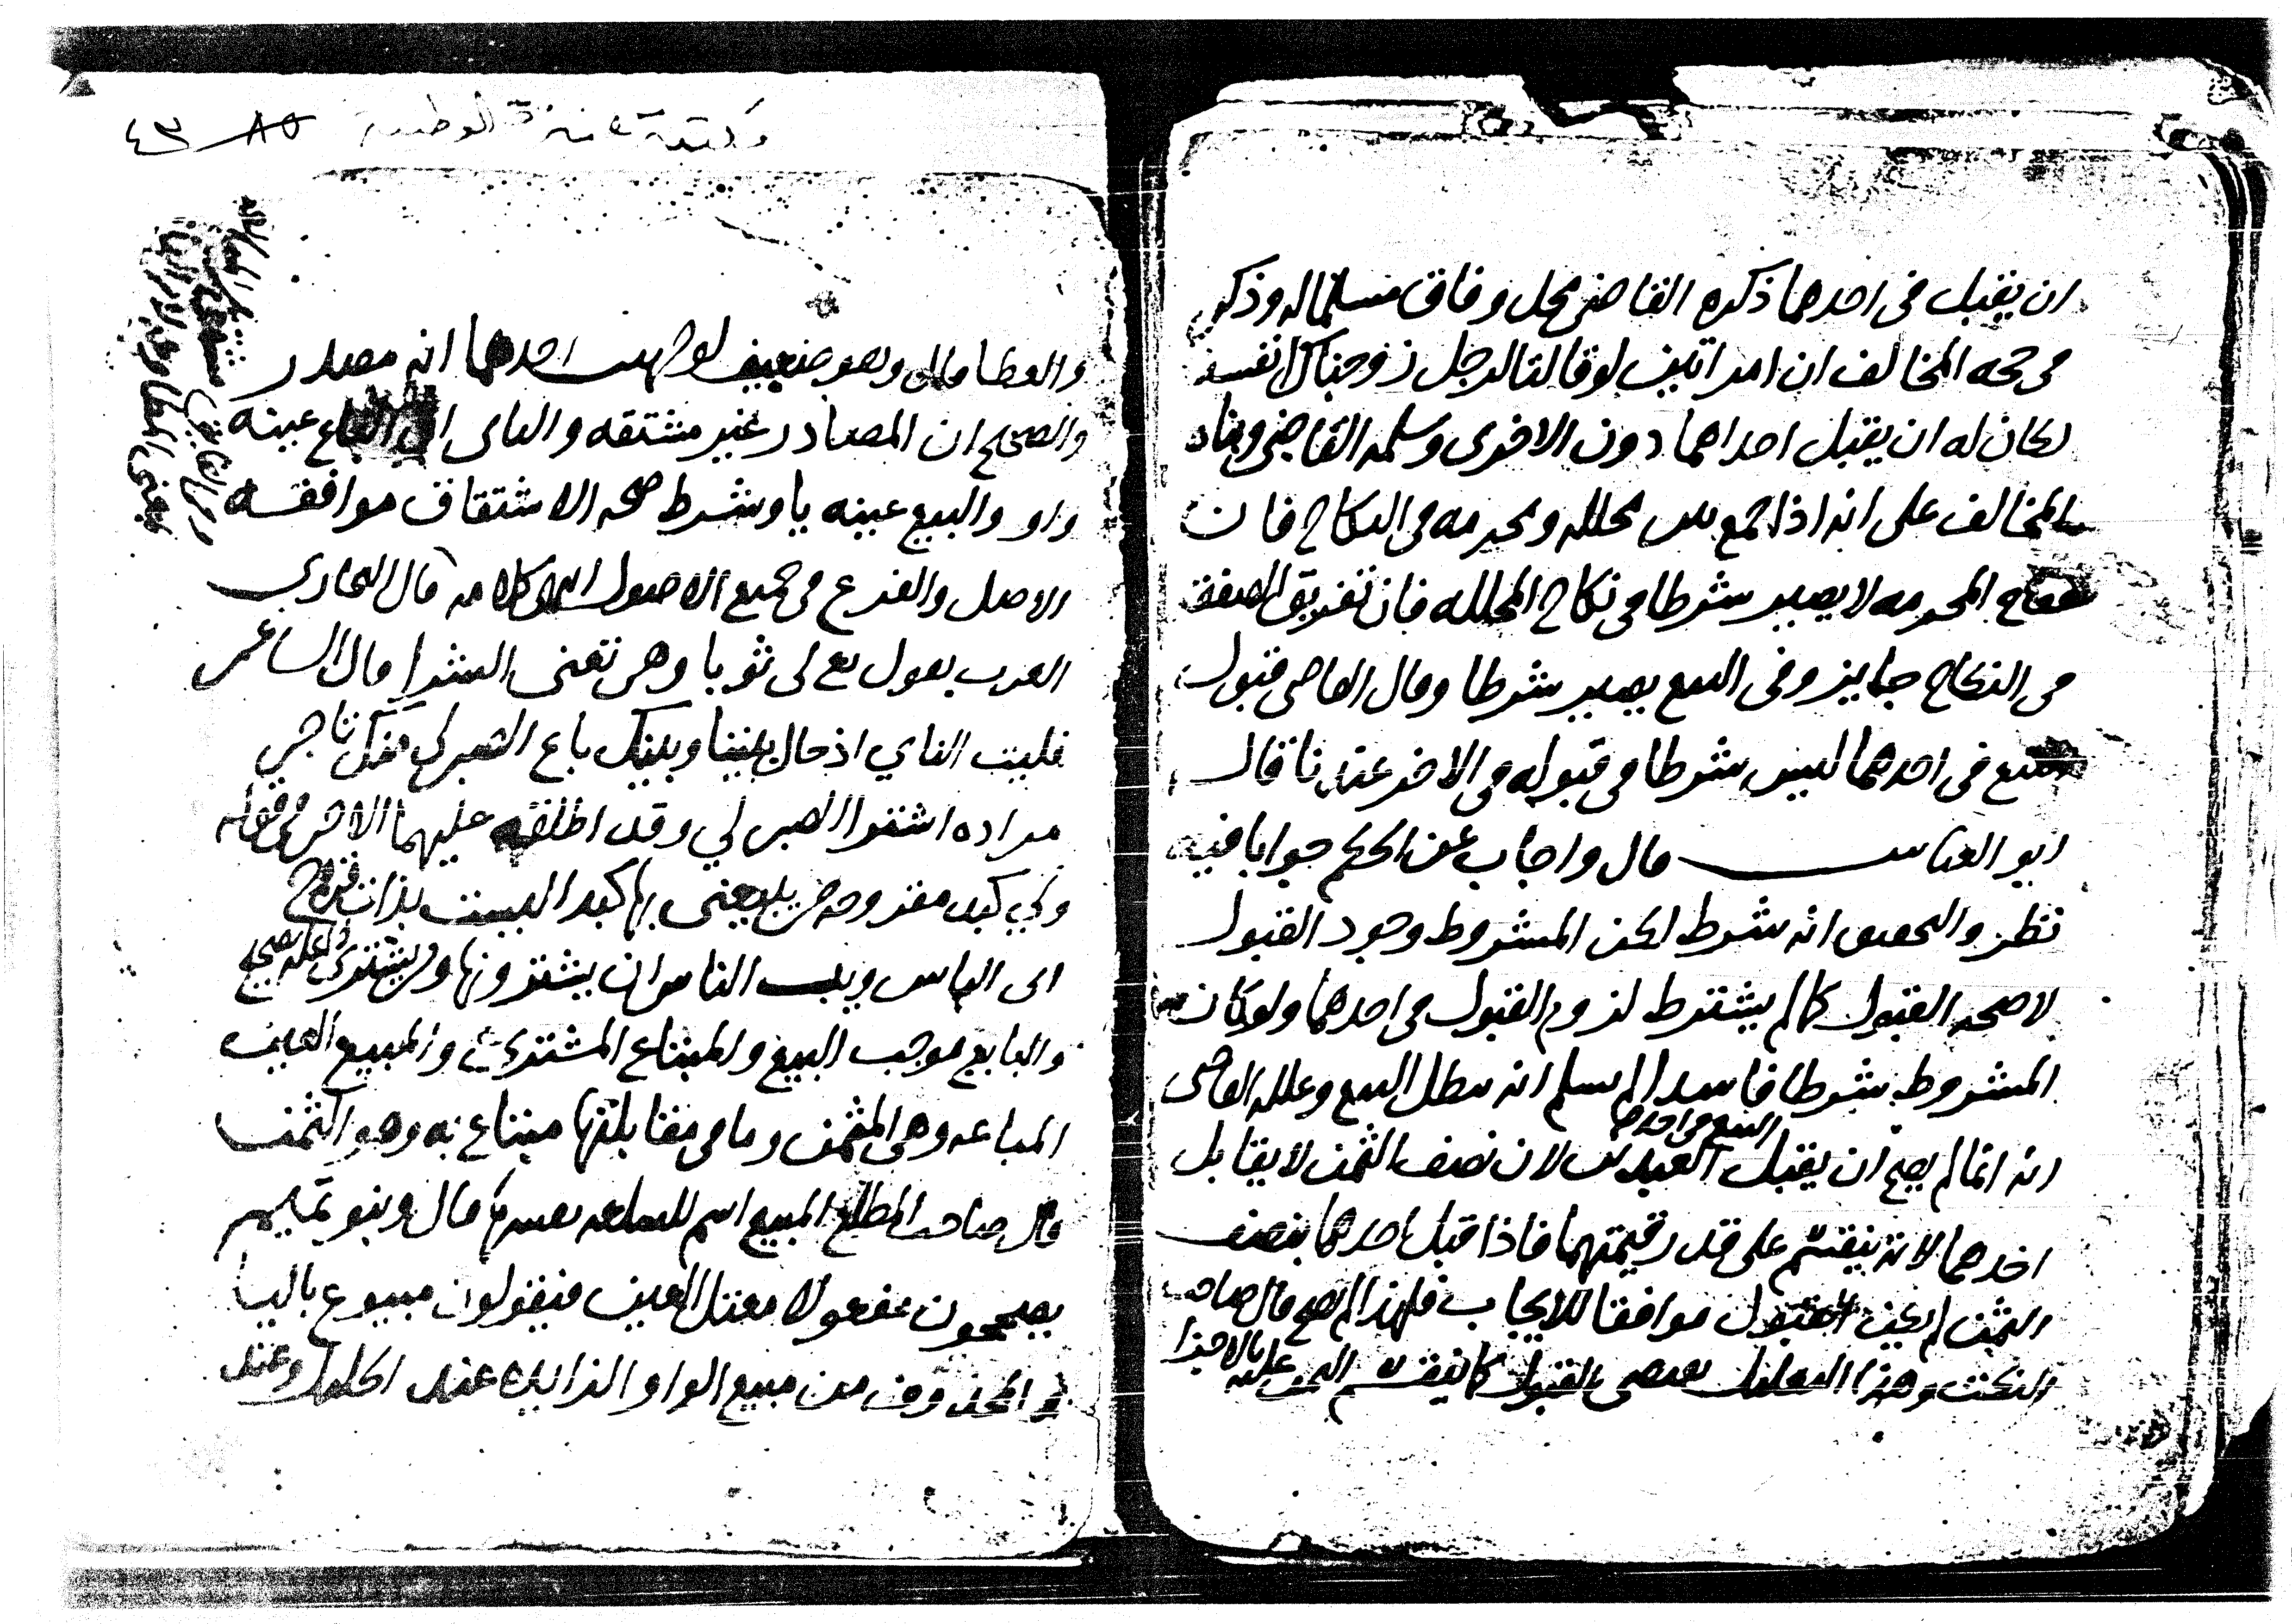 ان يقبل في احدهما ذكره القاضي محل وفاق مسلما له وذكر
في حجه المخالف ان امراتين لو قالتا لرجل زوجناك انفسنا
لكان له ان يقبل احداهما دون الاخرى وسلمه القاضي
المخالف على انه اذا جمع بين محلله ومحرمه في النكاح فان
نكاح المحرمه لا يصير شرطا في نكاح المحلله فان تفريق الصفقة
في النكاح جايز وفي البيع يصير شرطا وقال القاضي قبول
البيع في احدهما ليس شرطا في قبوله في الاخر عندنا قال
ابو العباس قال واجاب عن الحكم جوابا فيه
نظر والتحقيق انه شرط لكن المشروط وجود القبول
لا صحه القبول كما لم يشترط لزوم القبول في احدهما ولو كان
المشروط شرطا فاسدا لم نسلم انه يبطل البيع وعلله القاضي
البيع في احد
انه انما لم يصح ان يقبل العبدين لان نصف الثمن لا يقابل
احدهما لانه ينقسم على قدر قيمتهما فاذا قبل احدهما بنصف
الثمن لم يكن القبول موافقا للايجاب فلهذا لم يصح قال صاحب
النكت وهذا التعليل يقتضي القبول كما ينقسم الثمن عليه بالاجزا
مكتبة عنيزة الوطنية
٨٥ ٤٣
والعطا مال وهو ضعيف لوجهين احدهما انه مصدر
والصحيح ان المصادر غير مشتقه والثاني ان الباع عينه
واو والبيع عينه يا وشرط صحه الاشتقاق موافقه
الاصل والفرع في جميع الاصول كلامه قال البخاري
العرب تقول بع لي ثوبا وهي تعني الشرا قال الشاعر
فليت الناي اذ حال بيننا وبينك باع الصبر لي منك تاجر
مراده اشترا الصبر لي وقد اطلقه عليهما الاخر في قوله
ولي كبد مقروحه من يبيعني بها كبدا ليست بذات قروح
ابى الناس ويب الناس ان يشترونها ومن يشتري ذا عله بصحيح
والبايع موجب البيع والمبتاع المشتري والمبيع العين
المباعه وهي المثمن وما في مقابلتها مبتاع به وهو الثمن
قال صاحب المطلع المبيع اسم للسلعه نفسها قال وبنو تميم
يصححون مفعولا معتل العين فيقولون مبيوع باليا
والمحذوف من مبيع الواو الزايده عند الخليل وعند